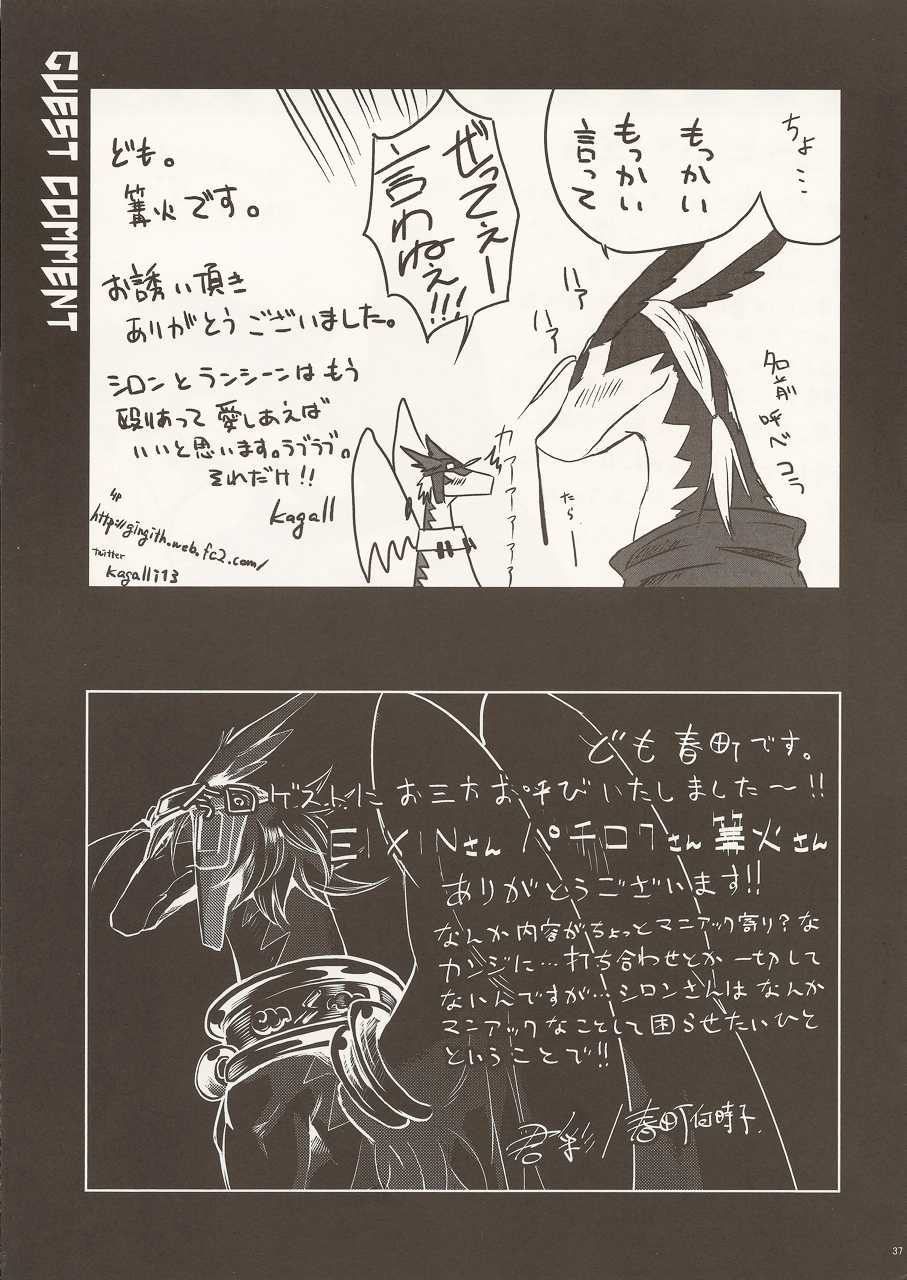 GUEST COMMENT
ちょ…
もっかい
もっかい
言って
ぜってぇー
言わねぇ!!!
ハァ
ハァ
名前呼べコラ
カァァァァァ
ども。
篝火です。
お誘い頂き
ありがとうございました。
シロンとランシーンはもう
殴りあって愛しあえば
いいと思います。ラブラブ。
それだけ!!
kagall
HP
http://gingith.web.fc2.com/
twitter
kagalli13
ども春町です。
ゲストにお三方お呼びいたしました〜!!
EIXINさん パチロクさん 篝火さん
ありがとうございます!!
なんか内容がちょっとマニアック寄り?な
カンジに…打ち合わせとか一切して
ないんですが…シロンさんはなんか
マニアックなことして困らせたいひと
ということで!!
君彩/春町何時子
37